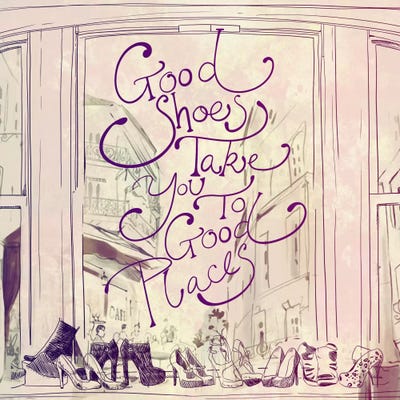 Good
Shoes
Take
You To
Good
Places
CAFE